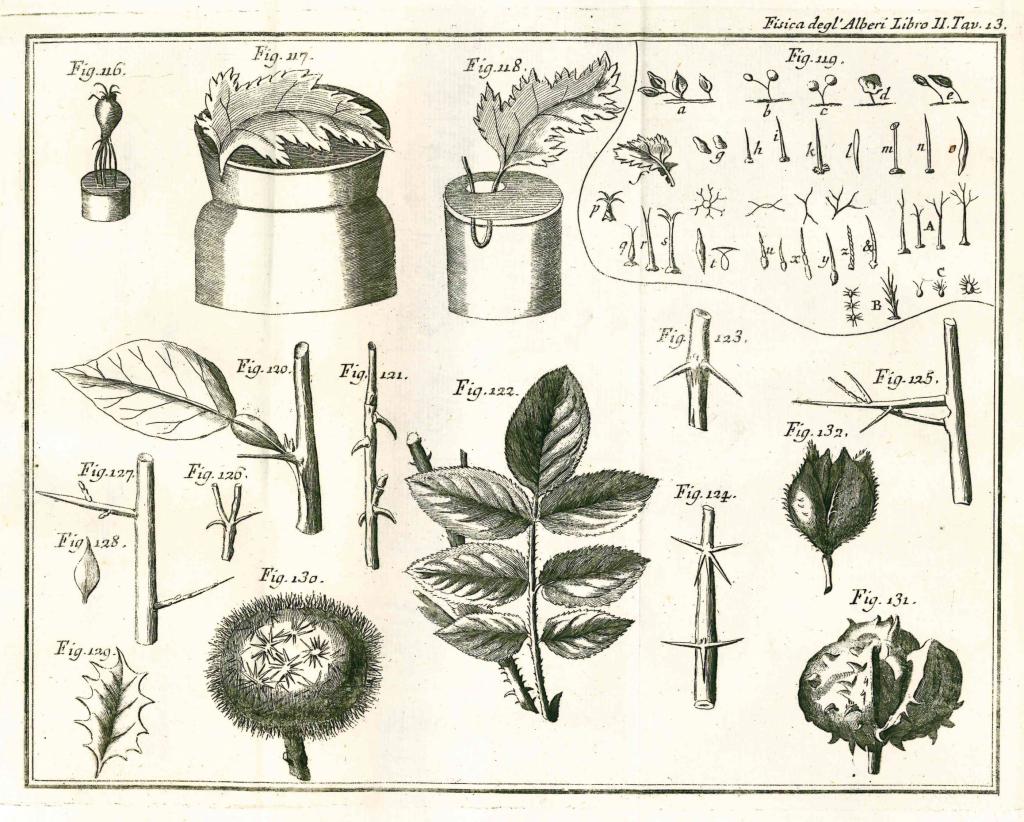 Fisica degl'Alberi Libro II. Tav. 13.
Fig. 116.
Fig. 117.
Fig. 118.
Fig. 119.
a
b
c
d
e
f
g
h
i
k
l
m
n
o
p
q
r
s
t
u
x
y
z
&
A
B
C
Fig. 120.
Fig. 121.
Fig. 122.
Fig. 123.
Fig. 125.
Fig. 132.
Fig. 127.
Fig. 126.
Fig. 124.
Fig. 128.
Fig. 130.
Fig. 131.
Fig. 129.